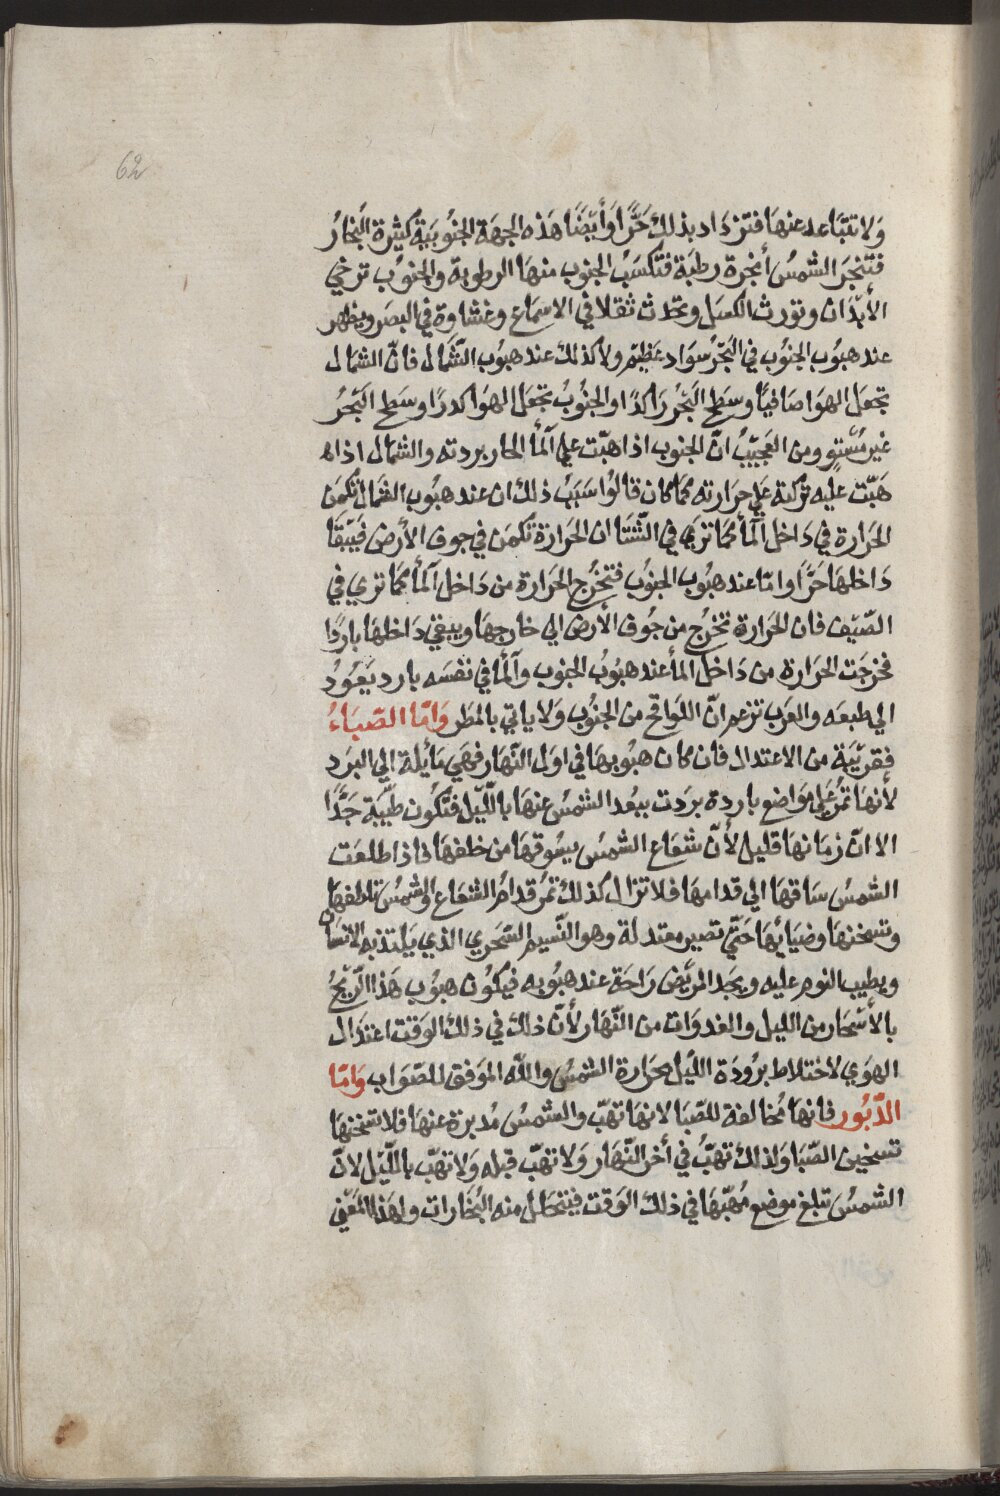 62
ولا تتباعد عنها فتزداد بذلك حرًّا وأيضًا هذه الجهة الجنوبية كثيرة البخار
فتبخر الشمس أبخرة رطبة فتكسب الجنوب منها الرطوبة والجنوب ترخي
الأبدان وتورث الكسل وتحدث ثقلا في الاسماع وغشاوة في البصر ويظهر
عند هبوب الجنوب في البحر سواد عظيم ولا كذلك عند هبوب الشمال فانّ الشمال
تجعل الهوا صافيًا وسطح البحر راكدًا والجنوبُ تجعل الهوا كدرًا وسطح البحرُ
غير مستوٍ ومن العجيبُ انّ الجنوب اذا هبّت علي ألمأ الحار بردته والشمال اذا
هبّت عليه تركته علي حرارته كما كان قالوا سبب ذلك ان عند هبوب الشمال تكمن
الحرارة في داخل ألمأ كما تري في الشتا ان الحرارة تكمن في جوف الأرض فيبقا
داخلها حرًّا وامّا عند هبوب الجنوب فتخرج الحرارة من داخل ألمأ كما تري في
الصّيف فان الحرارة تخرج من جوف الأرض الي خارجها ويبقي داخلها باردًا
فخرجت الحرارة من داخل المأ عند هبوبُ الجنوب وألمأ في نفسه بارد يعودُ
الي طبعه والعرب تزعم انّ اللواقح من الجنوب ولا ياتي بالمطر وامّا الصّباءُ
فقريبة من الاعتدال فان كان هبوبها في اول النّهار فهي مائلة الي البرد
لأنها تمرّ علي مواضع باردة بردت ببعد الشمس عنها باللّيل فتكون طيّبة جدًّا
الا انّ زمانها قليل لأنّ شعاع الشمس يسوقها من خلفها فاذا طلعت
الشمس ساقها الي قدامها فلا تزال كذلك تمرّ قدام الشعاع والشمس تلطفها
وتسخنها وضيائها حتّي تصير معتدلة وهو النّسيم السّحري الذي يلتذ به الانسان
ويطيب النوم عليه ويجد المريض راحة عند هبوبه فيكون هبوب هذا الرّيحُ
بالأسحار من الليل والغدوات من النّهار لأنّ ذلك في ذلك الوقت اعتدال
الهوي لاختلاط برودة الليل بحرارة الشمس والله الموفق للصّواب وامّا
الدّبُور فانها مُخالفة للصّبا لانها تهبّ والشمس مُدبرة عنها فلا تسخنها
تسخين الصّبا ولذلك تهبُّ في أخر النّهار ولا تهبّ قبله ولا تهبّ باللّيل لانّ
الشمس تبلغ موضع مُهبّها في ذلك الوقت فيتحلل منه البُخارات ولهذا المعني